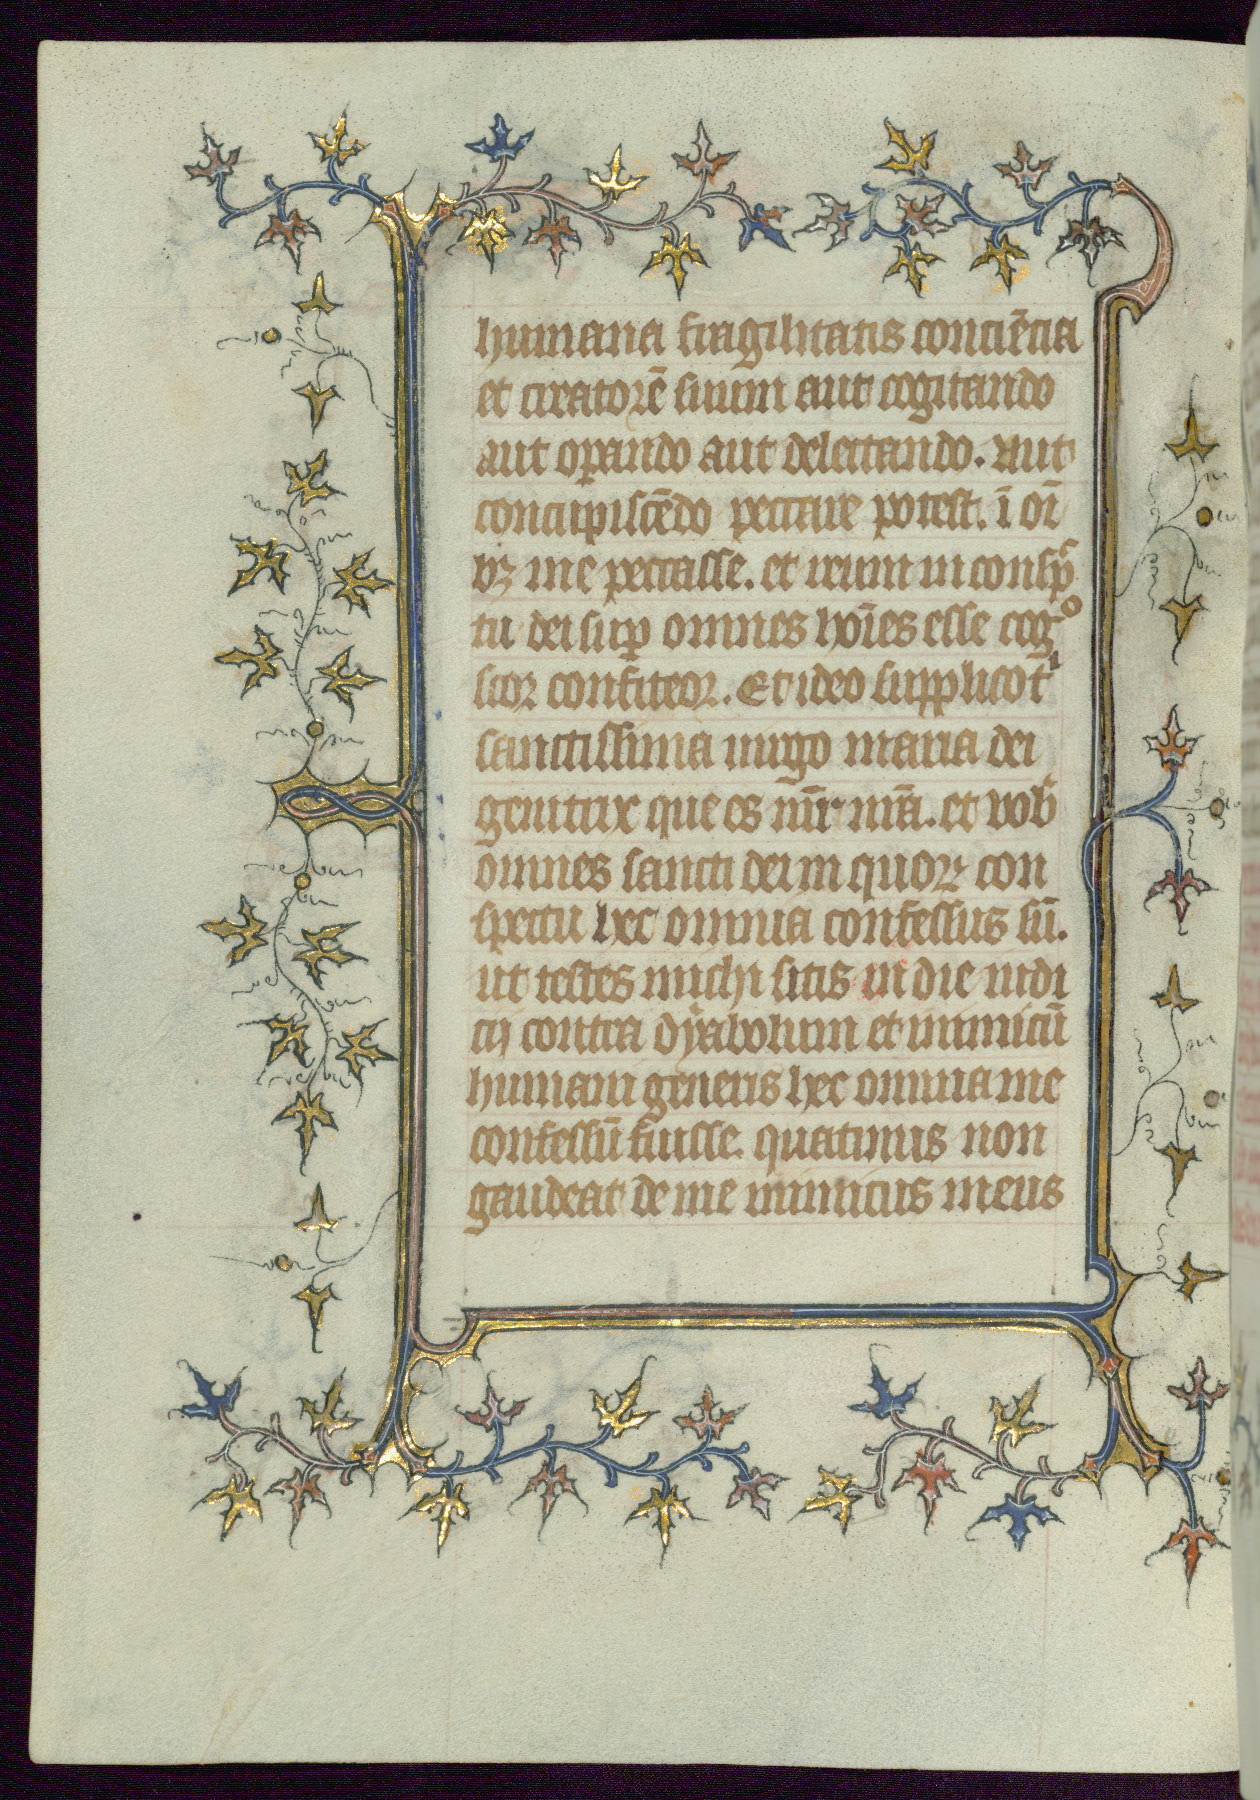 humana fragilitatis conciẽcia
et creatorẽ suum aut cogitando
aut oꝑando aut delectando. Aut
concupiscẽdo peccare potest. ĩ oĩ
bꝫ me peccasse. et reum in consp̱c
tu dei suꝑ omnes hoĩes esse cogͦ
scor confiteor. Et ideo supplico tⁱ
sanctissima uirgo maria dei
genitrix que es nũr mr̃a. et vob̾
omnes sancti dei in quoꝝ con
spectu hec omnia confessus sũ.
ut testes michi sitis in die iudi
cij contra dyabolum et inimicũ
humani generis hec omnia me
confessũ fuisse. quatinus non
gaudeat de me inimicus meus